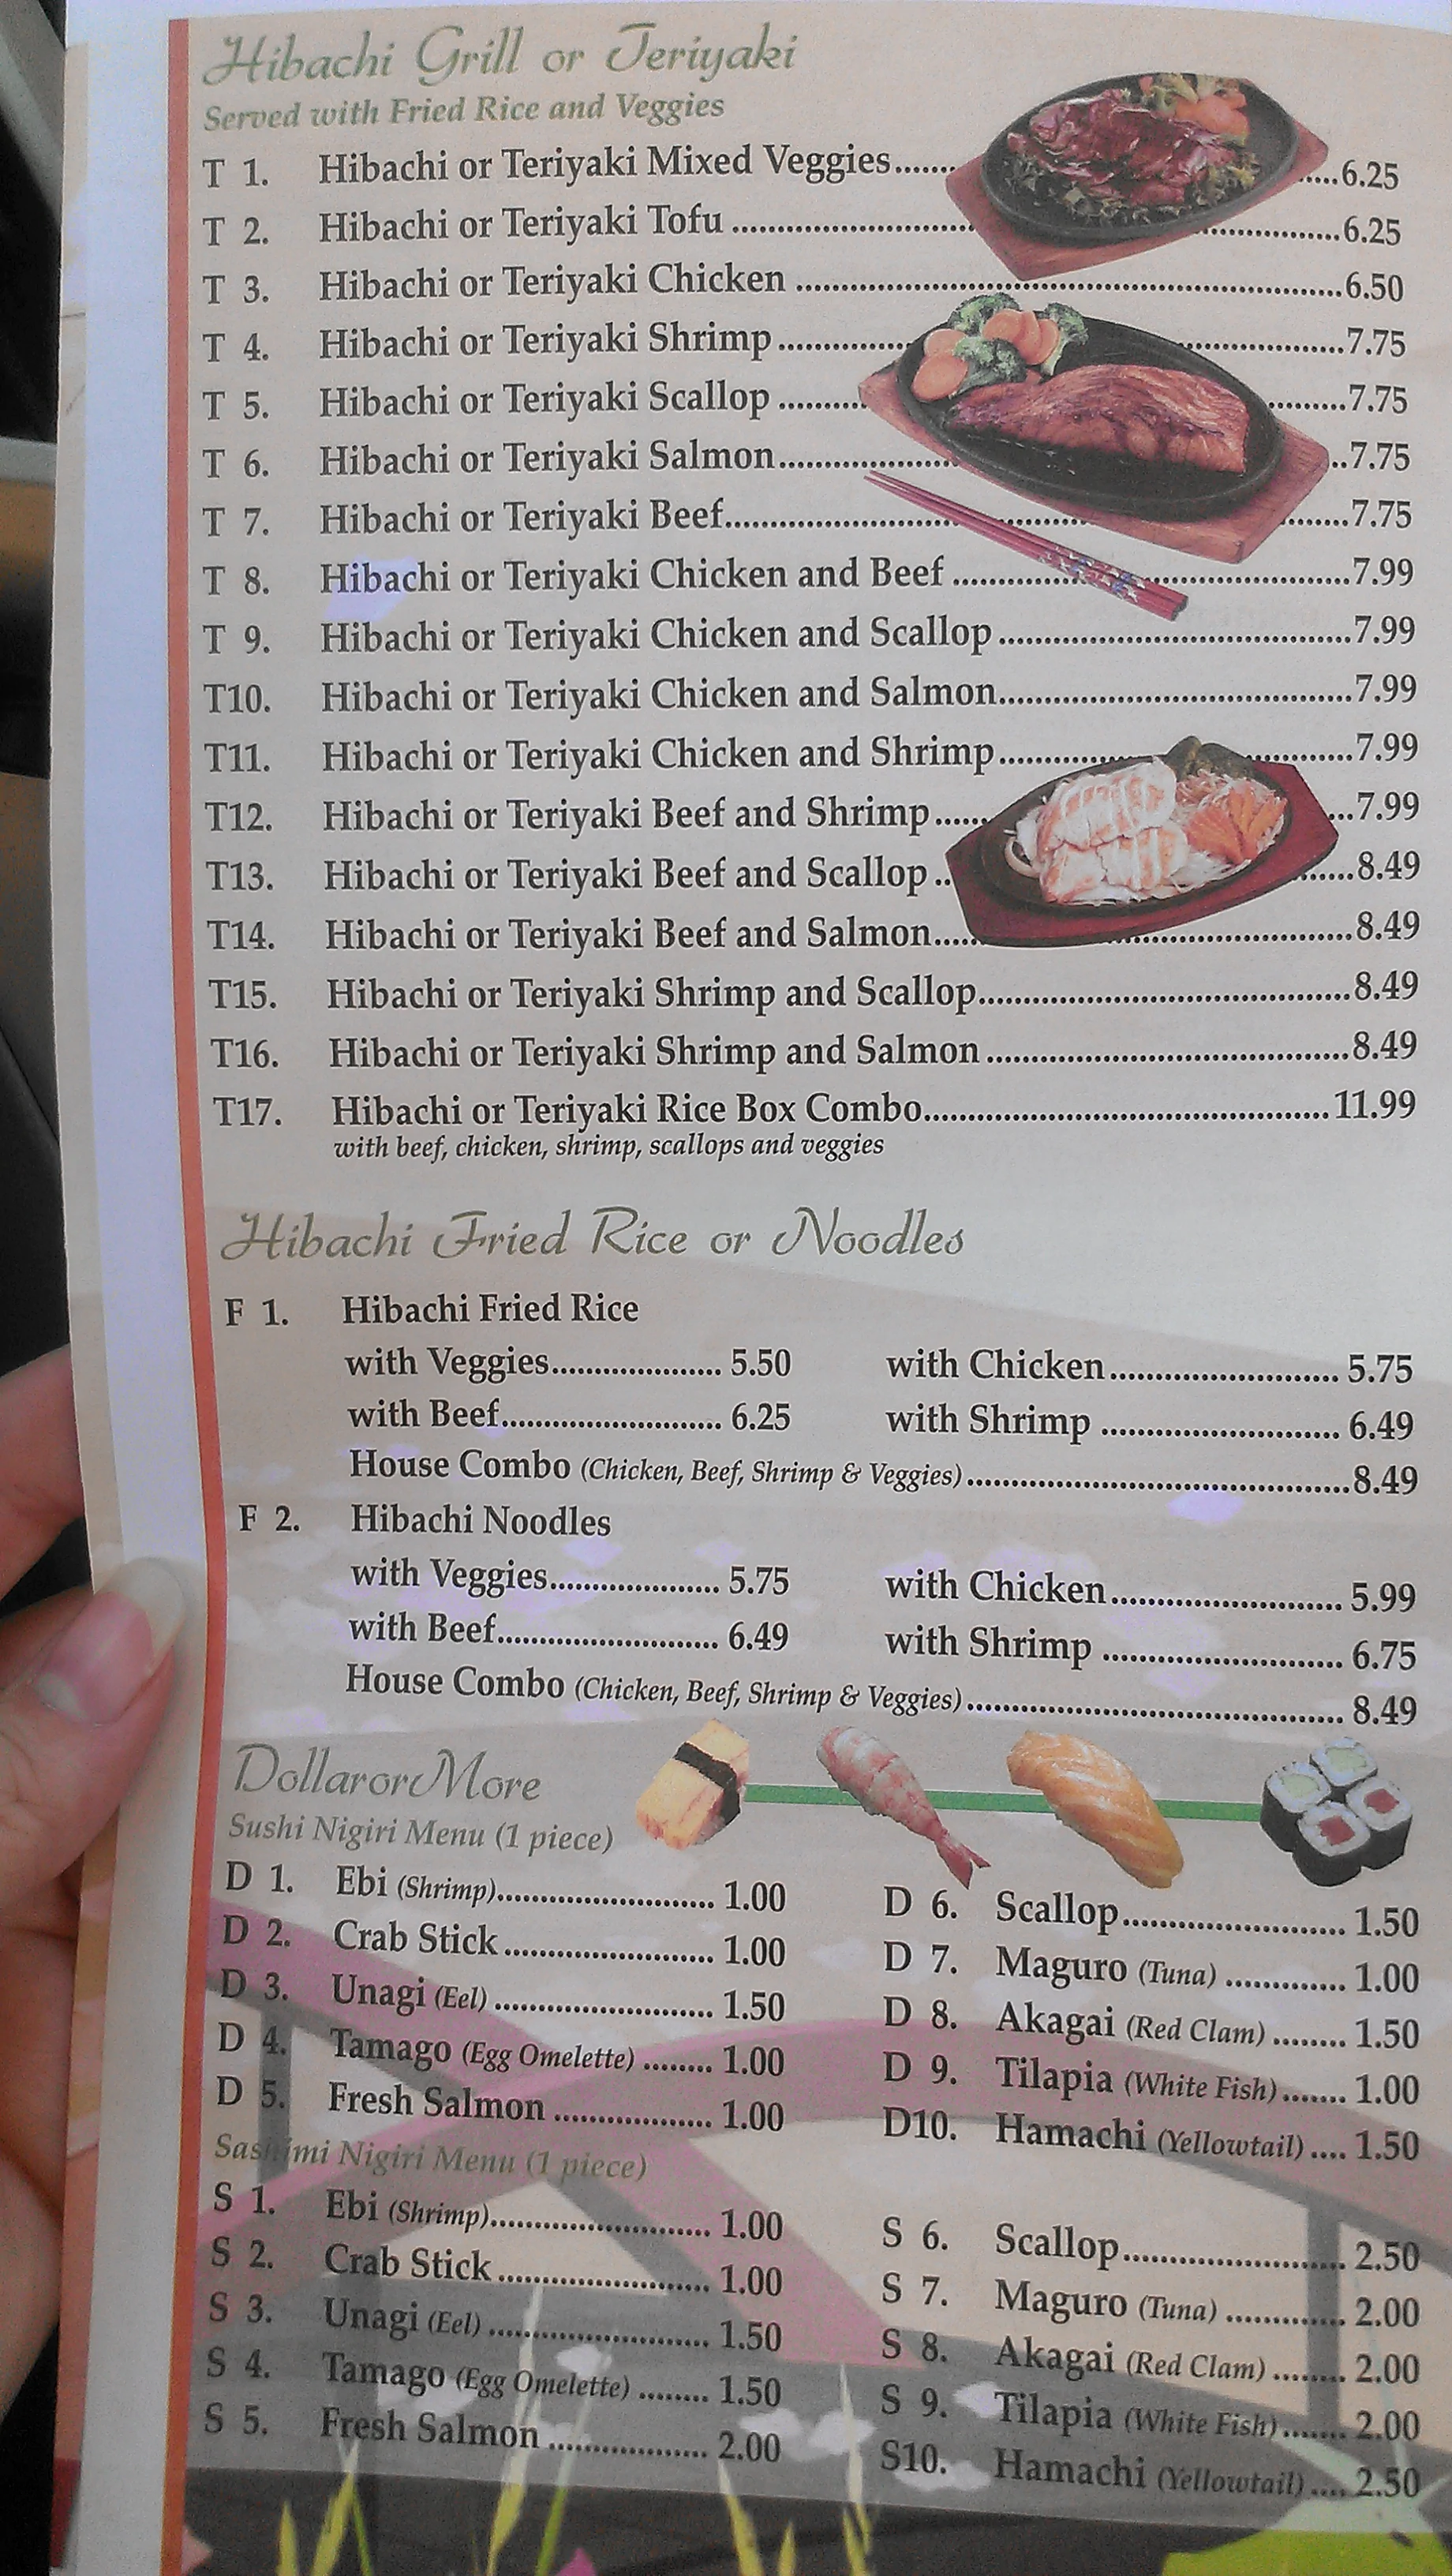 Hibachi Grill or Teriyaki
Served with Fried Rice and Veggies
T 1. Hibachi or Teriyaki Mixed Veggies.......6.25
T 2. Hibachi or Teriyaki Tofu.......6.25
T 3. Hibachi or Teriyaki Chicken.......6.50
T 4. Hibachi or Teriyaki Shrimp.......7.75
T 5. Hibachi or Teriyaki Scallop.......7.75
T 6. Hibachi or Teriyaki Salmon.......7.75
T 7. Hibachi or Teriyaki Beef.......7.75
T 8. Hibachi or Teriyaki Chicken and Beef.......7.99
T 9. Hibachi or Teriyaki Chicken and Scallop.......7.99
T10. Hibachi or Teriyaki Chicken and Salmon.......7.99
T11. Hibachi or Teriyaki Chicken and Shrimp.......7.99
T12. Hibachi or Teriyaki Beef and Shrimp.......7.99
T13. Hibachi or Teriyaki Beef and Scallop.......8.49
T14. Hibachi or Teriyaki Beef and Salmon.......8.49
T15. Hibachi or Teriyaki Shrimp and Scallop.......8.49
T16. Hibachi or Teriyaki Shrimp and Salmon.......8.49
T17. Hibachi or Teriyaki Rice Box Combo.......11.99
with beef, chicken, shrimp, scallops and veggies
Hibachi Fried Rice or Noodles
F 1. Hibachi Fried Rice
with Veggies....... 5.50 with Chicken....... 5.75
with Beef....... 6.25 with Shrimp ....... 6.49
House Combo (Chicken, Beef, Shrimp & Veggies).......8.49
F 2. Hibachi Noodles
with Veggies....... 5.75 with Chicken....... 5.99
with Beef....... 6.49 with Shrimp ....... 6.75
House Combo (Chicken, Beef, Shrimp & Veggies)....... 8.49
Dollar or More
Sushi Nigiri Menu (1 piece)
D 1. Ebi (Shrimp)....... 1.00
D 2. Crab Stick....... 1.00
D 3. Unagi (Eel)....... 1.50
D 4. Tamago (Egg Omelette)....... 1.00
D 5. Fresh Salmon....... 1.00
D 6. Scallop....... 1.50
D 7. Maguro (Tuna)....... 1.00
D 8. Akagai (Red Clam)....... 1.50
D 9. Tilapia (White Fish)....... 1.00
D10. Hamachi (Yellowtail).... 1.50
Sashimi Nigiri Menu (1 piece)
S 1. Ebi (Shrimp)....... 1.00
S 2. Crab Stick....... 1.00
S 3. Unagi (Eel)....... 1.50
S 4. Tamago (Egg Omelette)....... 1.50
S 5. Fresh Salmon....... 2.00
S 6. Scallop....... 2.50
S 7. Maguro (Tuna)....... 2.00
S 8. Akagai (Red Clam)....... 2.00
S 9. Tilapia (White Fish)....... 2.00
S10. Hamachi (Yellowtail).... 2.50